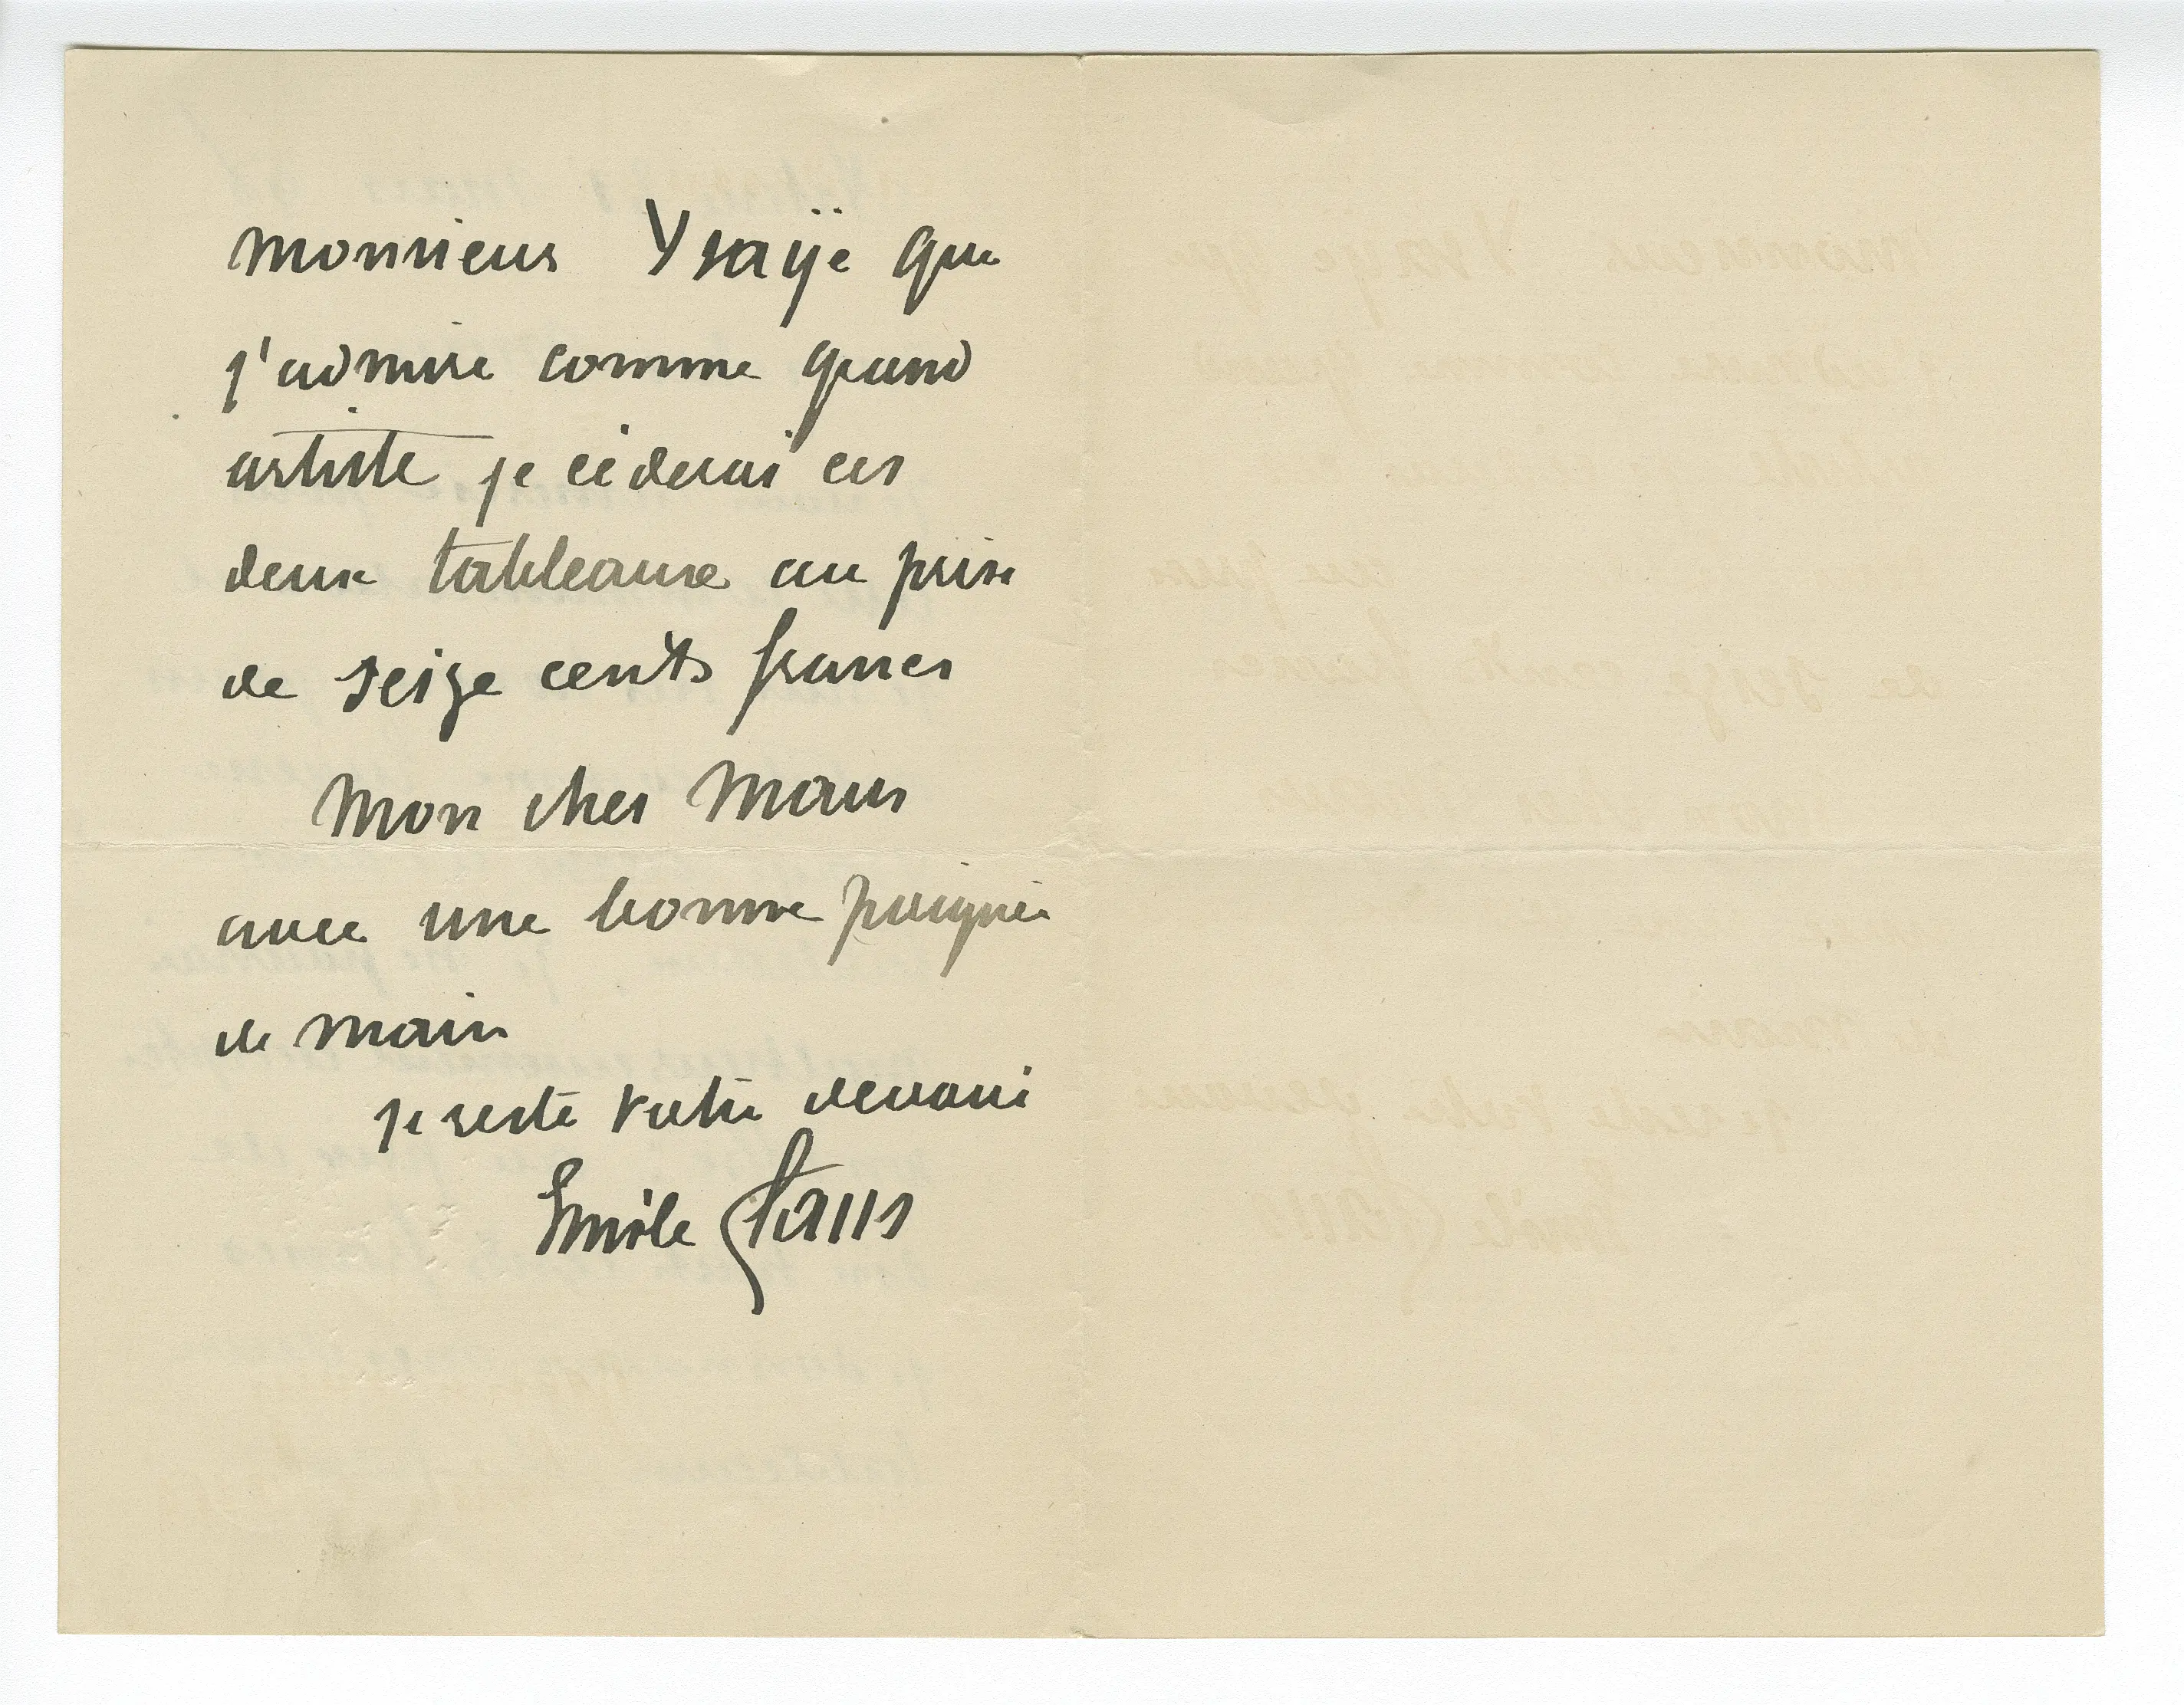 monsieur Ysaÿe que
j'admire comme grand
artiste je céderai ces
deux tableaux au prix
de seize cents francs
Mon cher Maus
avec une bonne poignée
de main
je reste votre devoué
Emile Claus